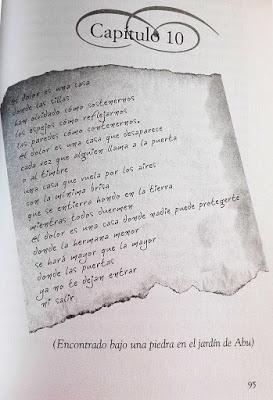 Capítulo 10
el dolor es una casa
donde las sillas
han olvidado cómo sostenernos
los espejos cómo reflejarnos
las paredes cómo contenernos.
el dolor es una casa que desaparese
cada vez que alguien llama a la puerta
o al timbre
una casa que vuela por los aires
con la mínima brisa
que se entierra hondo en la tierra
mientras todos duermen
el dolor es una casa donde nadie puede protegerte
donde la hermana menor
se hará mayor que la mayor
donde las puertas
ya no te dejan entrar
ni salir
(Encontrado bajo una piedra en el jardín de Abu)
95